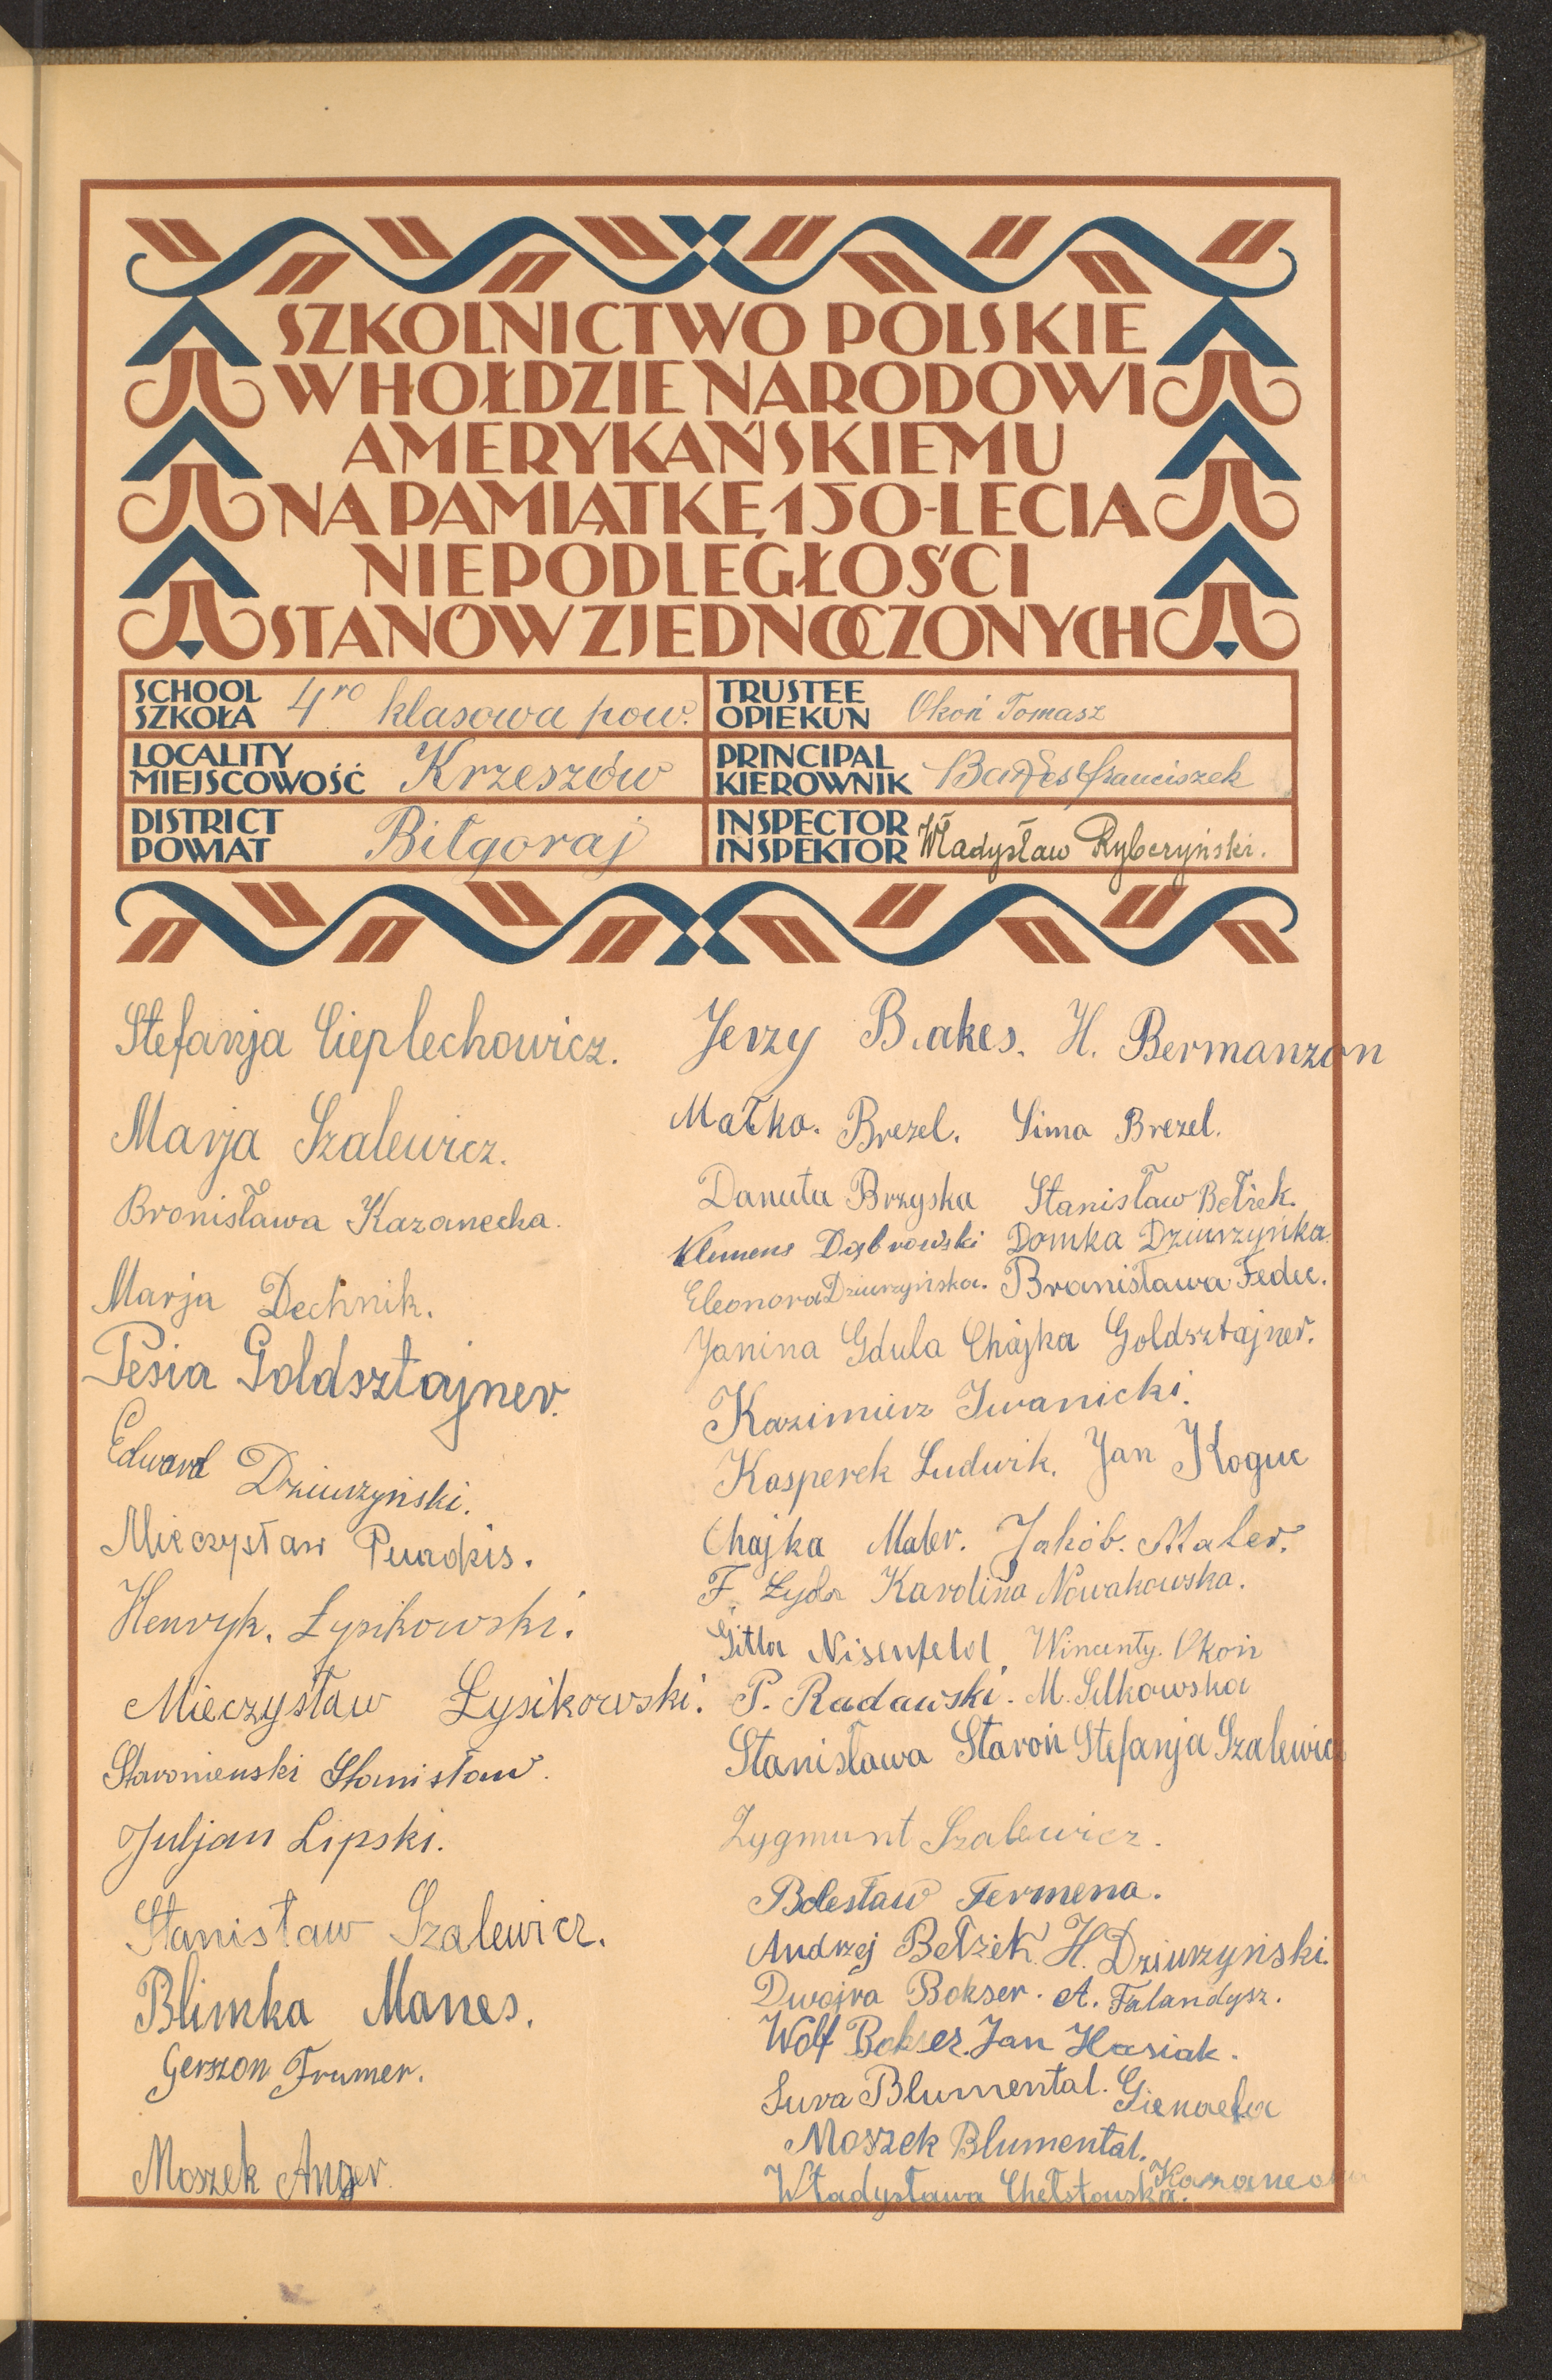 SZKOLNICTWO POLSKIE
W HOŁDZIE NARODOWI
AMERYKAŃSKIEMU
NA PAMIĄTKĘ 150-LECIA
NIEPODLEGŁOŚCI
STANÓW ZJEDNOCZONYCH
SCHOOL
SZKOŁA 4ro klasowa pow.
TRUSTEE
OPIEKUN Okoń Tomasz
LOCALITY
MIEJSCOWOŚĆ Krzeszów
PRINCIPAL
KIEROWNIK Franciszek
DISTRICT
POWIAT Biłgoraj
INSPECTOR
INSPEKTOR Władysław Rybczyński.
Stefanja Cieplechowicz.
Marja Szalewicz.
Bronisława Kazanecka.
Marja Dechnik.
Pesia Goldsztajner.
Edward Dziurzyński.
Mieczysław
Henryk. Łysikowski.
Mieczysław Łysikowski.
Staroniewski Stanisław.
Juljan Lipski.
Stanisław Szalewicz.
Blimka Manes.
Gerszon Frumer.
Moszek Anger
Jerzy B.akes. H. Bermanzon
Małka. Brezel. Sima Brezel.
Danuta Brzyska Stanisław Bełżek.
Klemens Dąbrowski Domka Dziurzyńka.
Eleonora Dziurzyńska. Bronisława Fedec.
Janina Gdula Chajka Goldsztajner.
Kazimierz Iwanicki.
Kasperek Ludwik. Jan Koguc
Chajka Maler. Jakób. Maler.
F Łyda Karolina Nowakowska.
Gitla Nisenfeld Wincenty. Okoń
P. Radawski. M. Silkowska
Stanisława Staroń Stefanja Szalewicz
Zygmunt Szalewicz.
Bolesław Termena.
Andrzej Bełżek. H. Dziurzyński.
Dwojra Bokser. A. Falandysz.
Wolf Bokser. Jan Hasiak.
Sura Blumental. Gienaefa
Moszek Blumental. Kazanecka
Władysława Chełstowska.